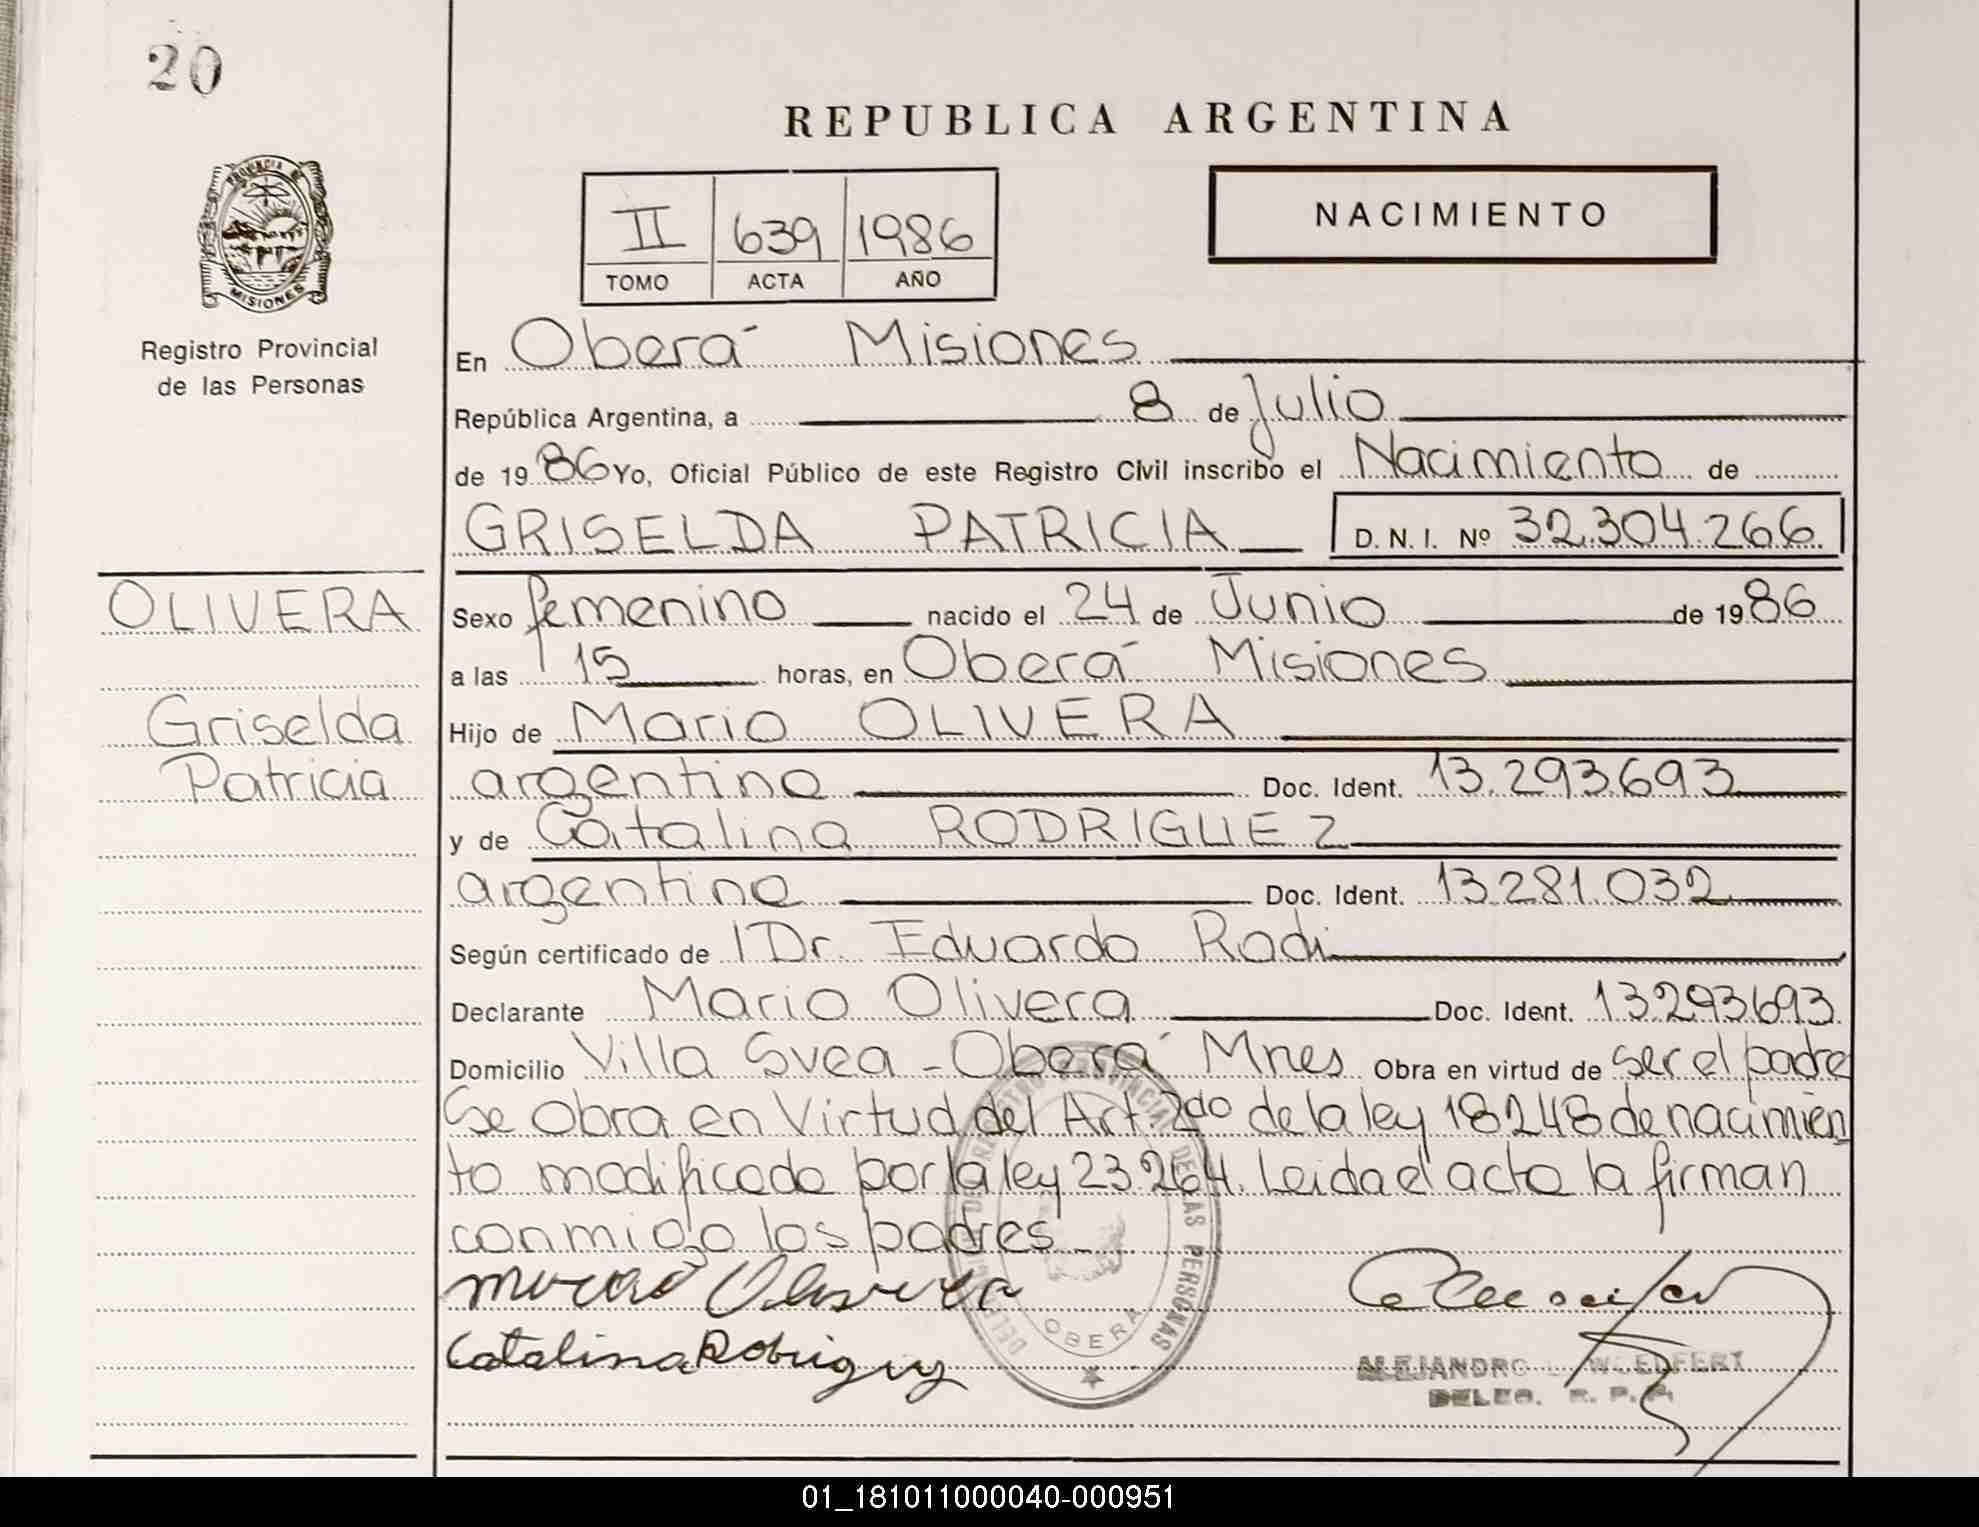 20
REPUBLICA ARGENTINA
PROVINCIA DE
MISIONES
Registro Provincial
de las Personas
II 639 1986
TOMO ACTA AÑO
NACIMIENTO
En Oberá Misiones
República Argentina, a 8 de Julio
de 1986 Yo, Oficial Público de este Registro Civil inscribo el Nacimiento de
GRISELDA PATRICIA D. N. I. Nº 32.304.266
OLIVERA
Griselda
Patricia
Sexo femenino nacido el 24 de Junio de 1986
a las 15 horas, en Oberá Misiones
Hijo de Mario OLIVERA
argentino Doc. Ident. 13.293.693
y de Catalina RODRIGUEZ
argentina Doc. Ident. 13.281.032
Según certificado de Dr. Eduardo Rodi
Declarante Mario Olivera Doc. Ident. 13293693
Domicilio Villa Svea - Oberá Mnes Obra en virtud de ser el padre
Se Obra en Virtud del Art. 2do de la ley 18248 de nacimien
to modificado por la ley 23.264. Leida el acta la firman
conmigo los padres
Catalina Rodriguez
OBERA
ALEJANDRO
DELEG. R. P. P.
01_181011000040-000951